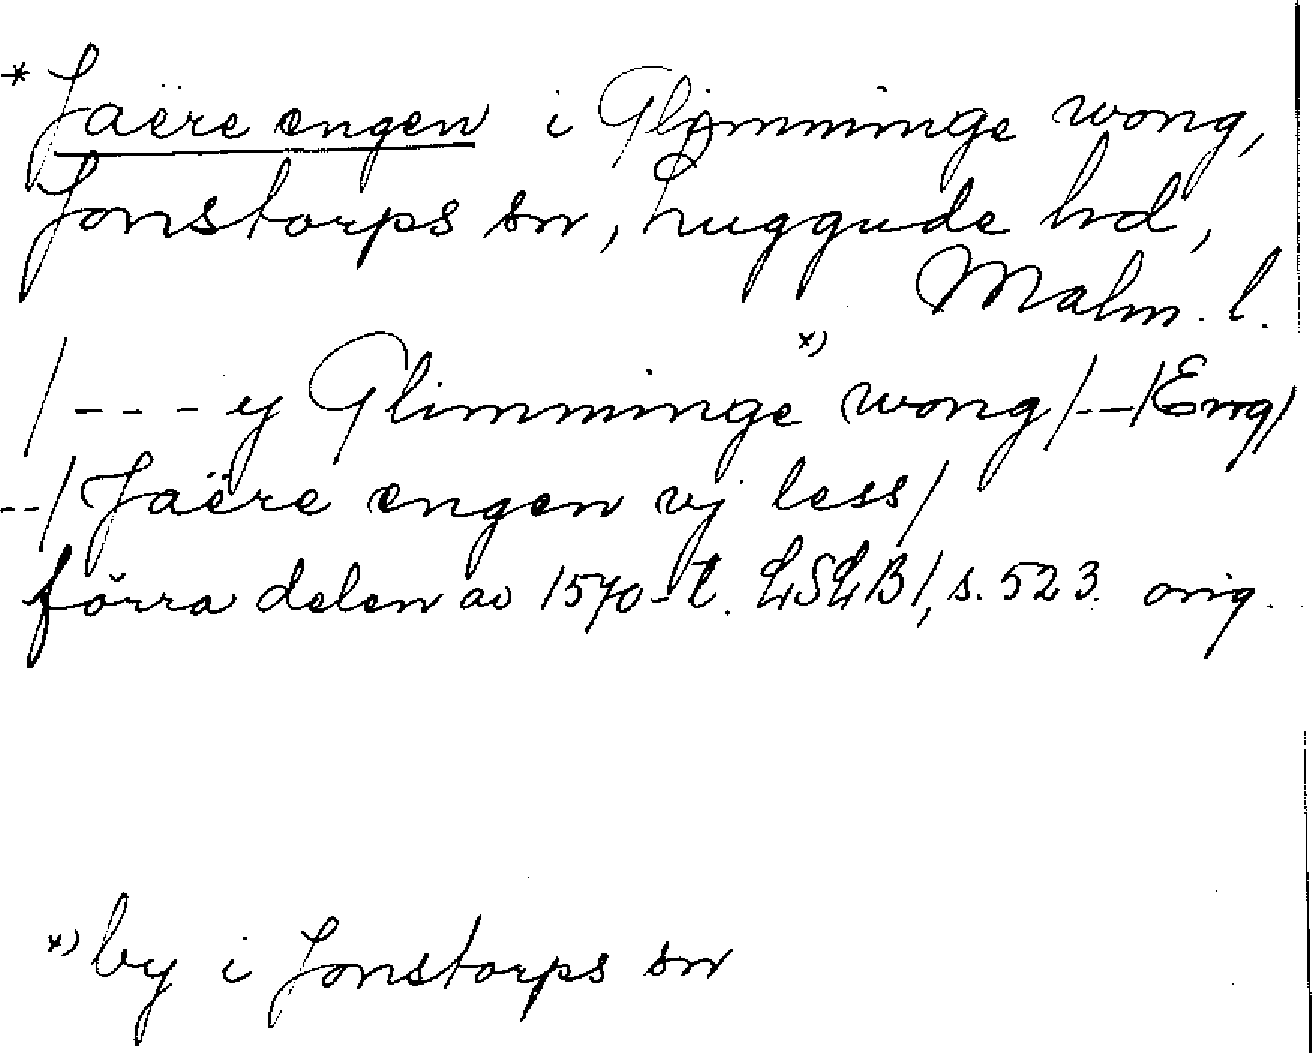 * Jaëre engen i Glimminge wong,
Jonstorps sn, Luggude hd,
Malm. l.
/--- y Glimminge x) wong/--/Eng/
--/Jaëre engen vj less/
förra delen av 1570-t. LSLB1, s. 523. orig.
x) by i Jonstorps sn